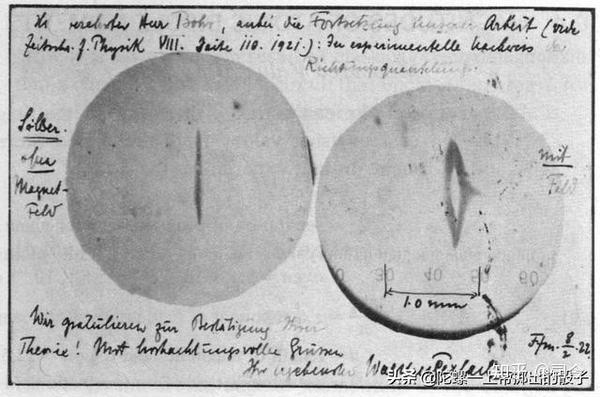 verehrter Herr Bohr, anbei die Fortsetzung unserer Arbeit (vide
Zeitschr. f. Physik VIII. Seite 110. 1921.): Der experimentelle Nachweis
Richtungsquantelung.
Silber
ohne
Magnet-
Feld
mit
Feld
30 40 50 60
1.0 mm
Wir gratulieren zur Bestätigung Ihrer
Theorie! Mit hochachtungsvollen Grüssen
Ihr ergebenster Walther Gerlach
Ffm. 8/2. 22.
知乎
头条 @陀螺一上帝掷出的骰子